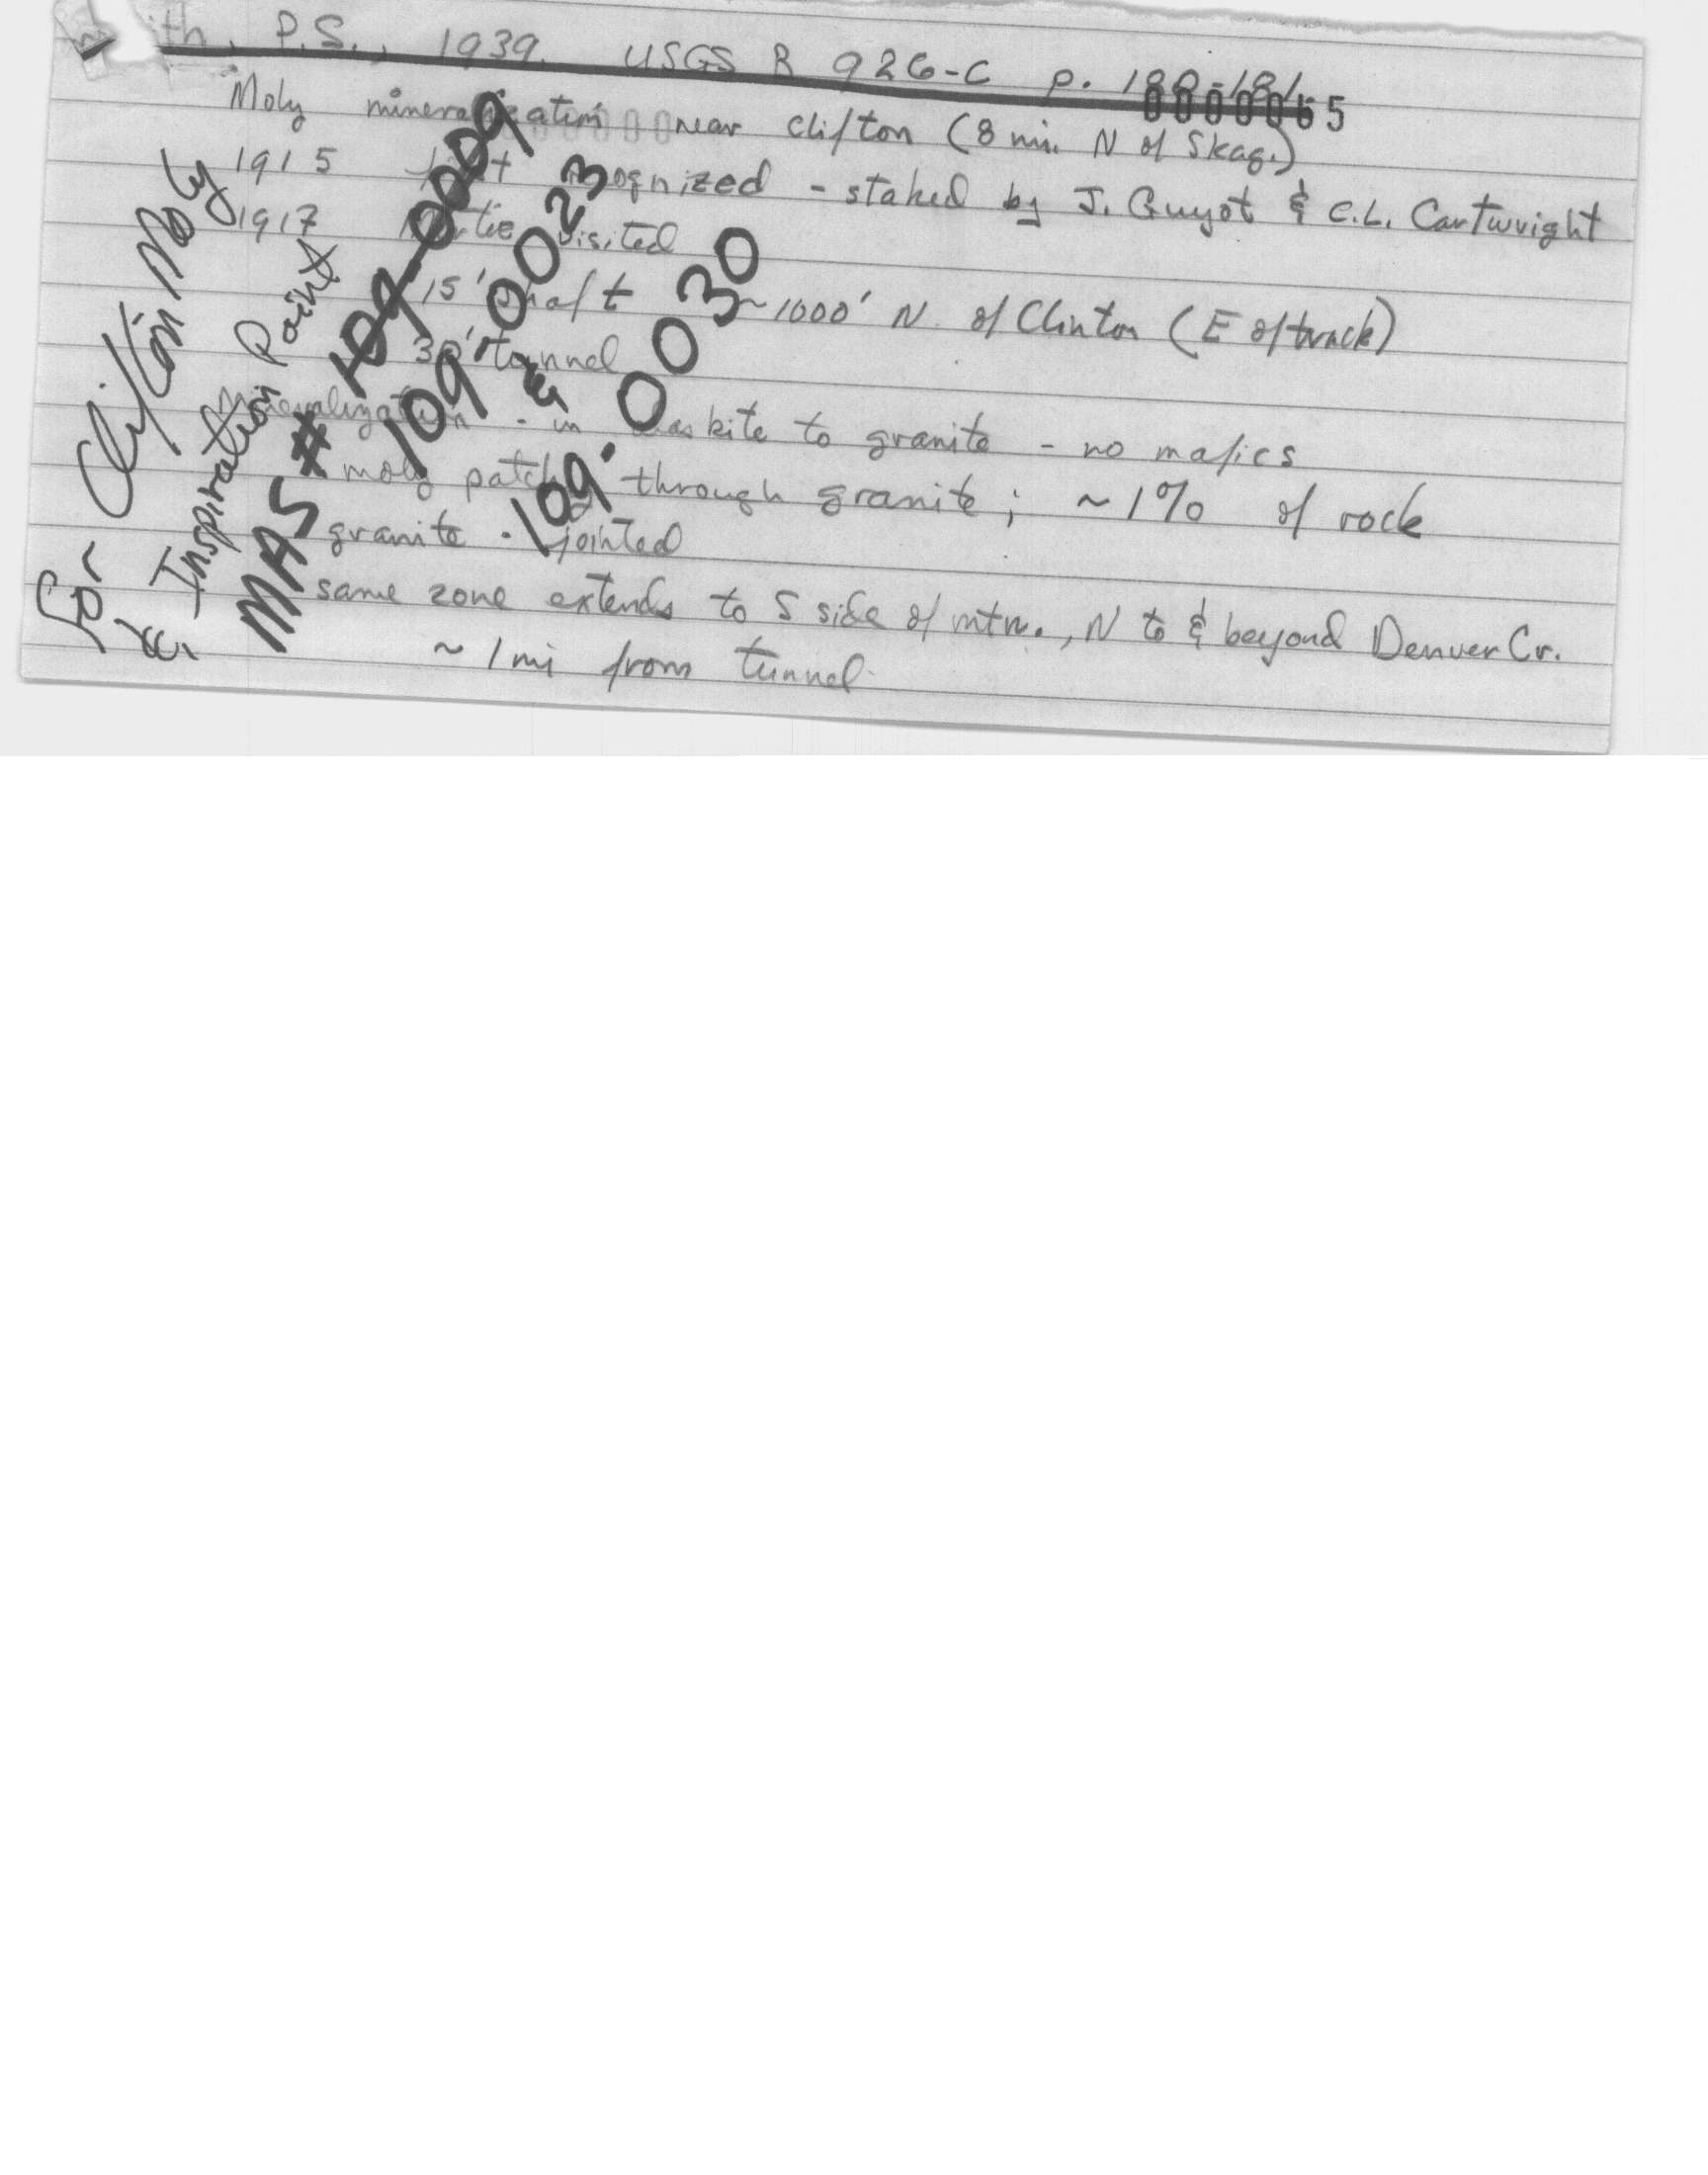 th, P.S., 1939. USGS B 926-C p. 180-181.
0000065
Moly mineralization near Clifton (8 mi. N of Skag.)
1915 first recognized - staked by J. Guyot & C.L. Cartwright
1917 Mertie visited
15' shaft ~1000' N. of Clinton (E of track)
30' tunnel
Mineralization - in alaskite to granite - no mafics
moly patchy through granite; ~1% of rock
granite - jointed
same zone extends to S side of mtn., N to & beyond Denver Cr.
~ 1 mi from tunnel
For Clifton Moly
& Inspiration Point
MAS # 109-0009
109.0023
&
109.0030